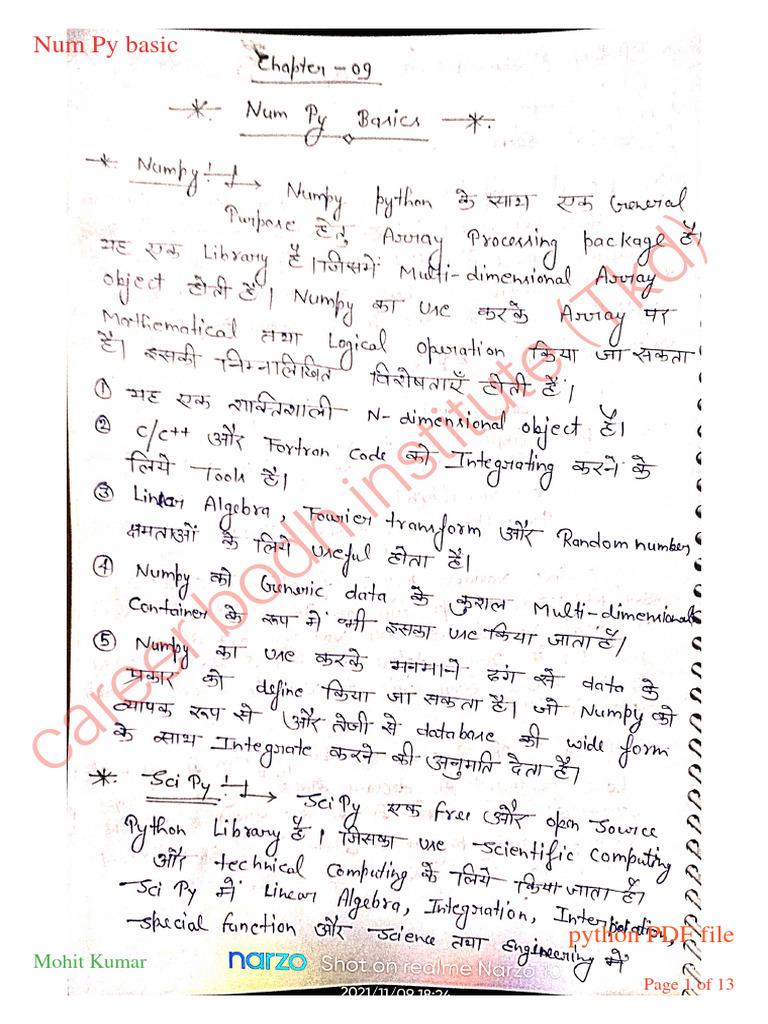 Num Py basic
Chapter - 09
Num Py Basics
Numpy :- Numpy python के साथ एक General
Purpose हेतु Array Processing package है।
यह एक Library है। जिसमें Multi-dimensional Array
object होती हैं। Numpy का use करके Array पर
Mathematical तथा Logical operation किया जा सकता
है। इसकी निम्नलिखित विशेषताएँ होती हैं।
① यह एक शक्तिशाली N-dimensional object है।
② C/C++ और Fortran Code को Integrating करने के
लिये Tools है।
③ Linear Algebra, Fourier transform और Random number
क्षमताओं के लिये useful होता है।
④ Numpy को Generic data के कुशल Multi-dimensional
Container के रूप में भी इसका use किया जाता हैं।
⑤ Numpy का use करके मनमाने ढंग से data के
प्रकार को define किया जा सकता है। जो Numpy को
व्यापक रूप से और तेजी से database की wide form
के साथ Integrate करने की अनुमति देता है।
Sci Py :- SciPy एक free और open source
Python Library है। जिसका use Scientific Computing
और technical Computing के लिये किया जाता है।
Sci Py में Linear Algebra, Integration,
special function और Science तथा Engineering में
career bodh institute (Tkd)
python PDF file
Mohit Kumar
narzo Shot on realme Narzo
Page 1 of 13
2021/11/09 18:24